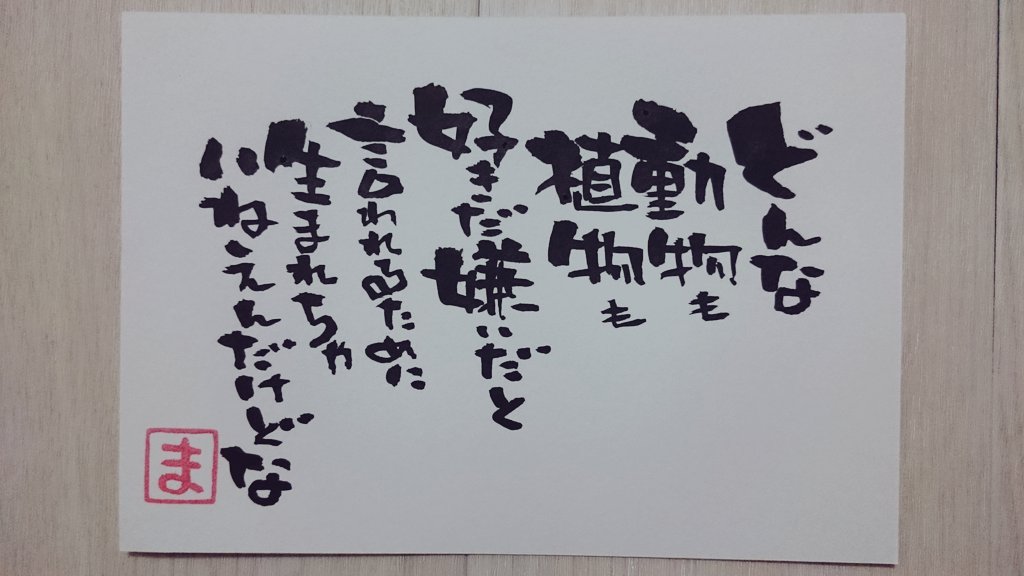 どんな
動物も
植物も
好きだ嫌いだと
言われるために
生まれちゃ
いねえんだけどな
ま